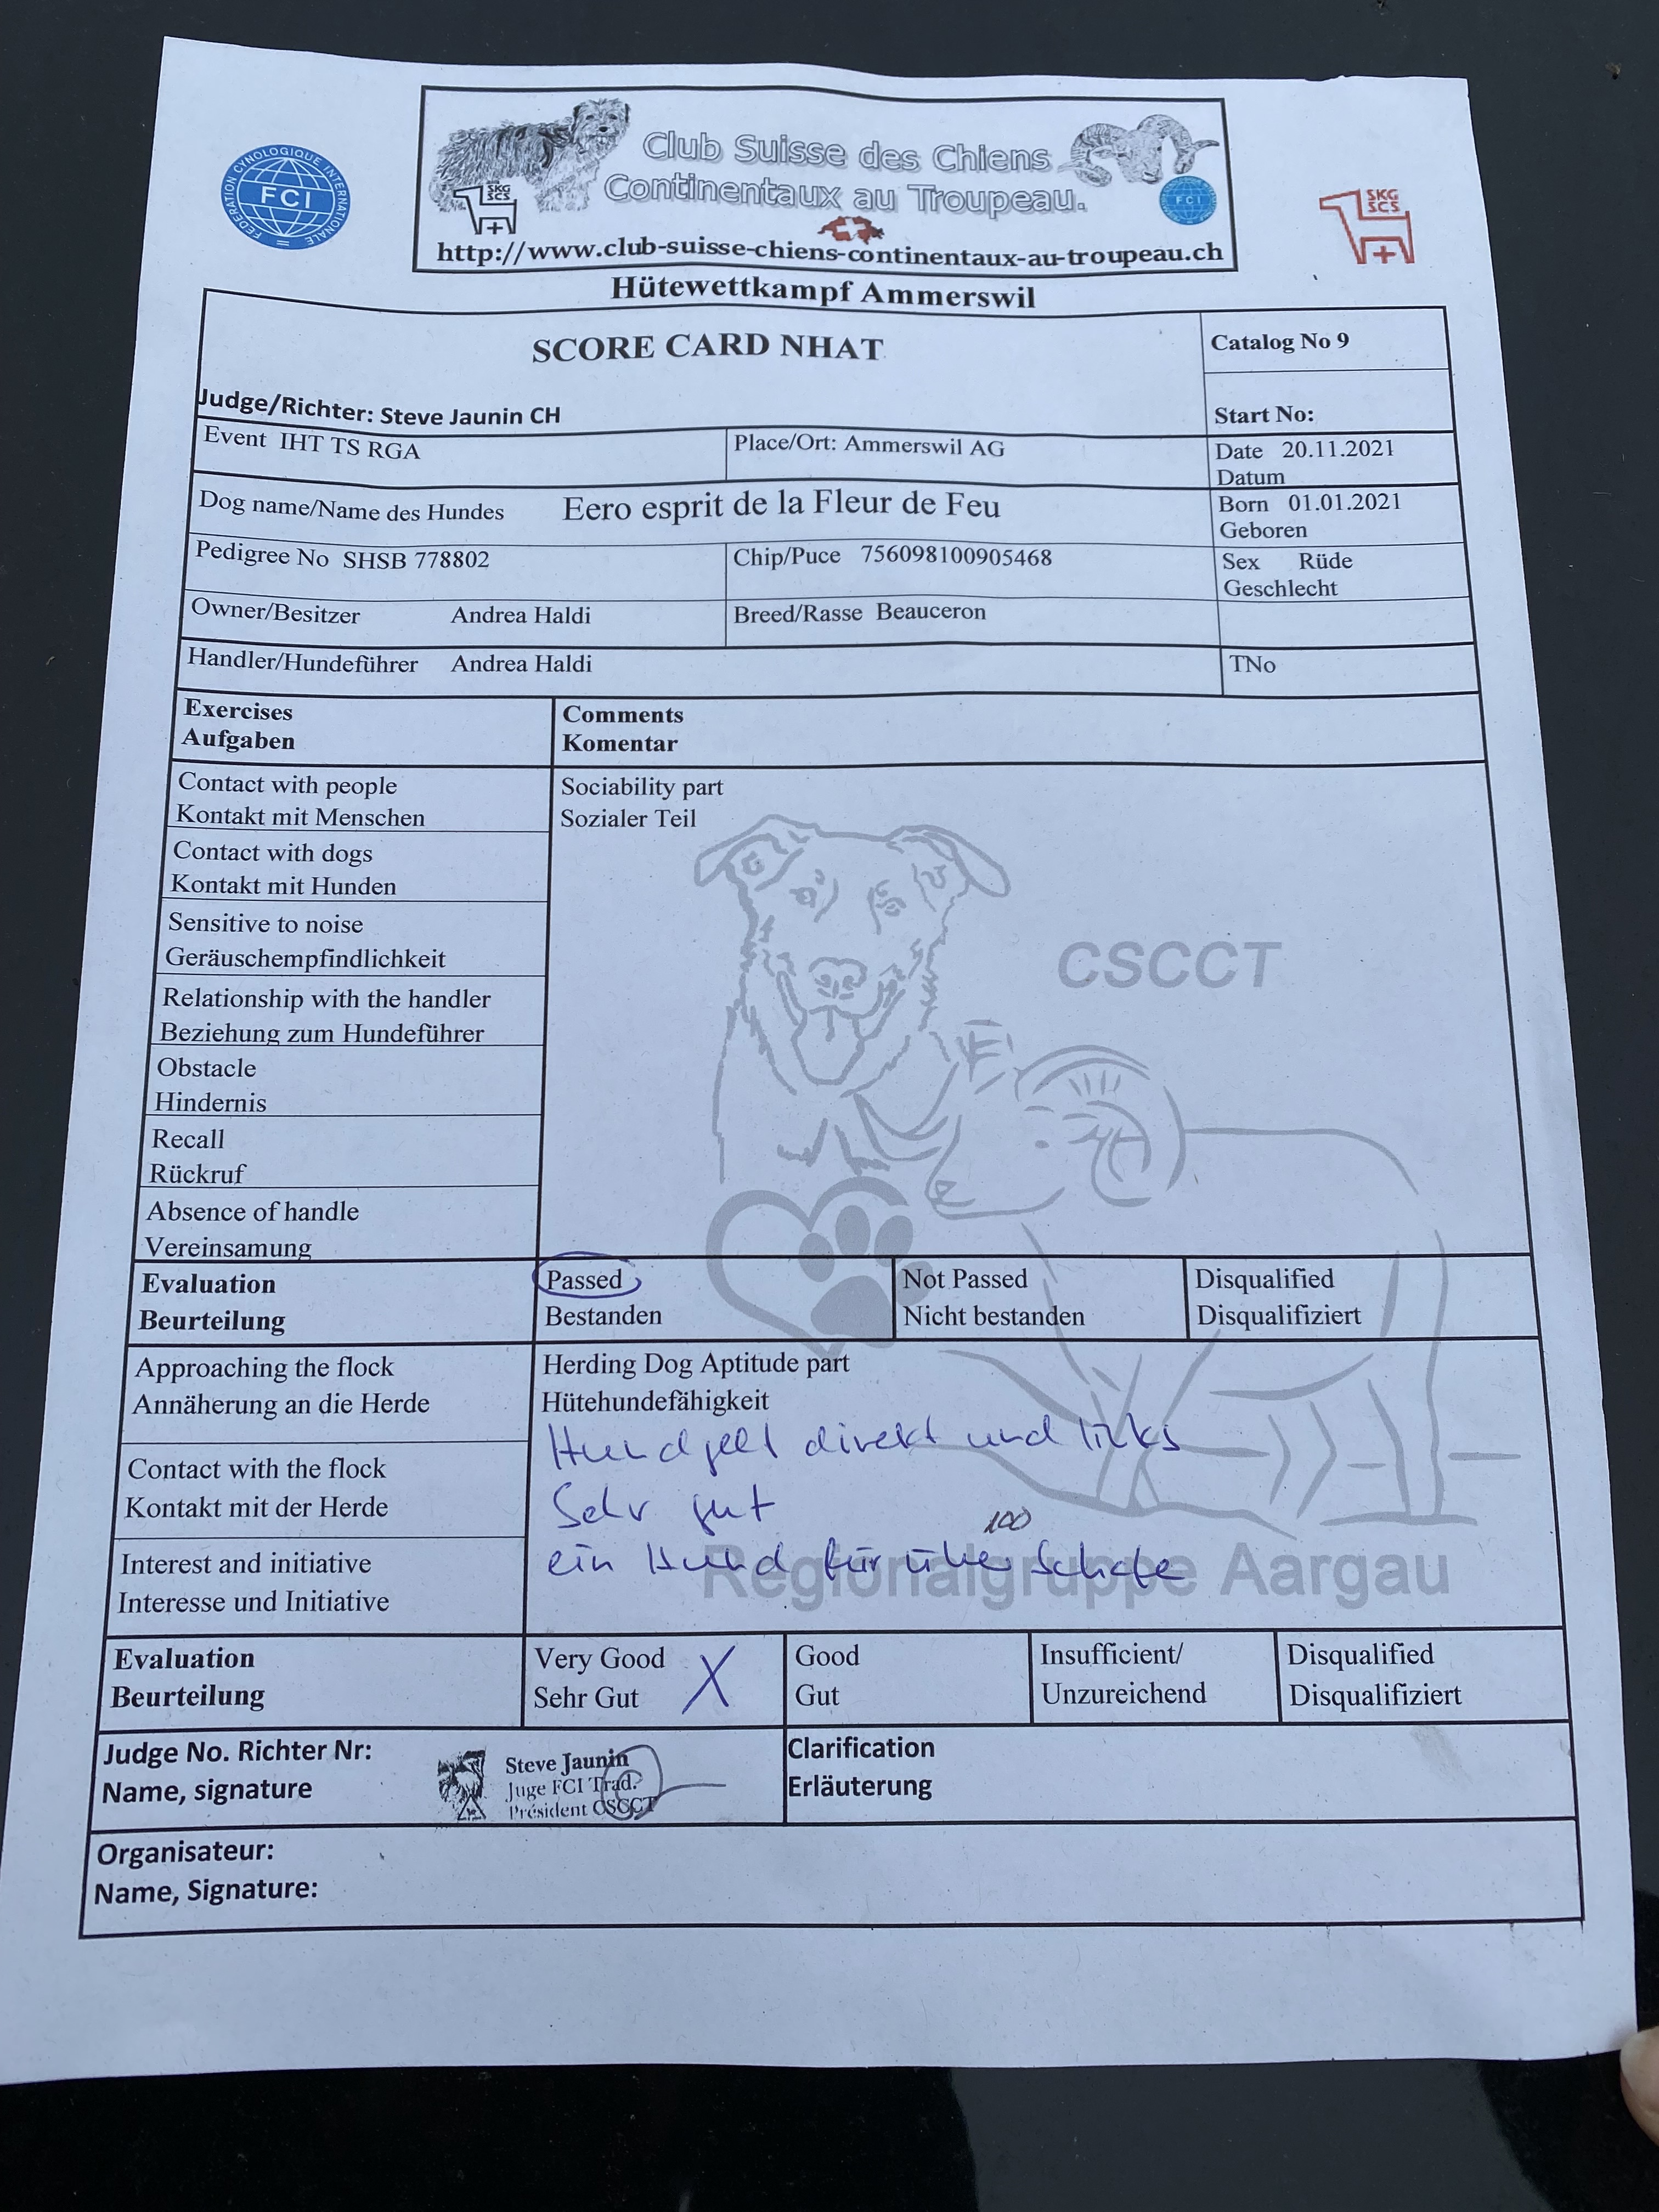 FEDERATION CYNOLOGIQUE INTERNATIONALE
FCI
Club Suisse des Chiens
Continentaux au Troupeau.
SKG
SCS
FCI
http://www.club-suisse-chiens-continentaux-au-troupeau.ch
SKG
SCS
Hütewettkampf Ammerswil
SCORE CARD NHAT
Catalog No 9
Judge/Richter: Steve Jaunin CH
Start No:
Event IHT TS RGA
Place/Ort: Ammerswil AG
Date 20.11.2021
Datum
Dog name/Name des Hundes Eero esprit de la Fleur de Feu
Born 01.01.2021
Geboren
Pedigree No SHSB 778802
Chip/Puce 756098100905468
Sex Rüde
Geschlecht
Owner/Besitzer Andrea Haldi
Breed/Rasse Beauceron
Handler/Hundeführer Andrea Haldi
TNo
Exercises
Aufgaben
Comments
Komentar
Contact with people
Kontakt mit Menschen
Sociability part
Sozialer Teil
Contact with dogs
Kontakt mit Hunden
Sensitive to noise
Geräuschempfindlichkeit
CSCCT
Relationship with the handler
Beziehung zum Hundeführer
Obstacle
Hindernis
Recall
Rückruf
Absence of handle
Vereinsamung
Evaluation
Beurteilung
Passed
Bestanden
Not Passed
Nicht bestanden
Disqualified
Disqualifiziert
Approaching the flock
Annäherung an die Herde
Herding Dog Aptitude part
Hütehundefähigkeit
Hund geht direkt und links
Contact with the flock
Kontakt mit der Herde
Sehr gut
Interest and initiative
Interesse und Initiative
ein Hund für über 100 Schafe
Regionalgruppe Aargau
Evaluation
Beurteilung
Very Good
Sehr Gut X
Good
Gut
Insufficient/
Unzureichend
Disqualified
Disqualifiziert
Judge No. Richter Nr:
Name, signature
Steve Jaunin
Juge FCI Trad.
Président CSCCT
Clarification
Erläuterung
Organisateur:
Name, Signature: